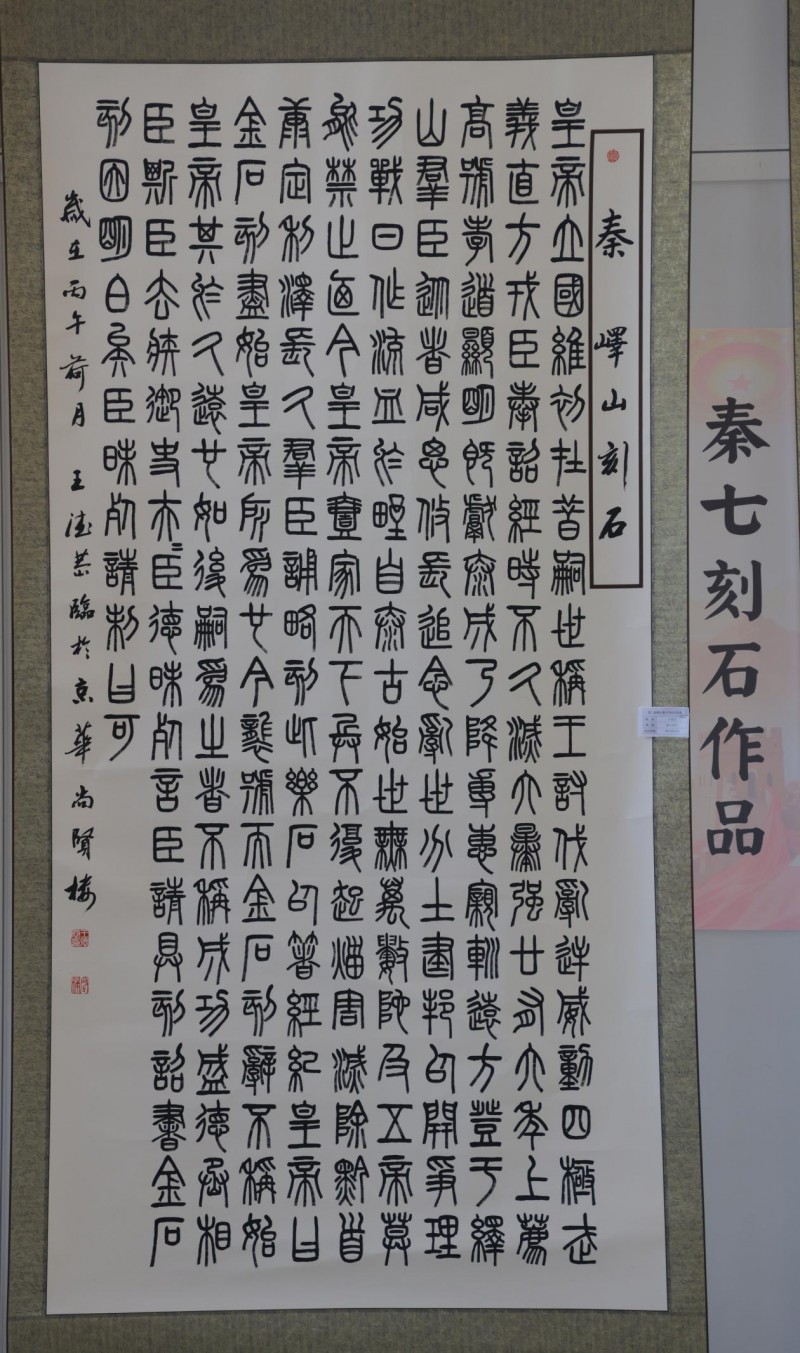 秦 嶧山刻石
皇帝立國維初在昔嗣世稱王討伐亂逆威動四極武
義直方戎臣奉詔經時不久滅六暴強廿有六年上薦
高號孝道顯明既獻泰成乃降專惠親巡遠方登于繹
山羣臣從者咸思攸長追念亂世分土建邦以開爭理
功戰日作流血於野自泰古始世無萬數陀及五帝莫
能禁止迺今皇帝壹家天下兵不復起災害滅除黔首
康定利澤長久羣臣誦略刻此樂石以著經紀皇帝曰
金石刻盡始皇帝所爲也今襲號而金石刻辭不稱始
皇帝其於久遠也如後嗣爲之者不稱成功盛德丞相
臣斯臣去疾御史夫=臣德昧死言臣請具刻詔書金石
刻因明白矣臣昧死請制曰可
歲在丙午荷月 王德恭臨於京華尚賢樓
秦七刻石作品